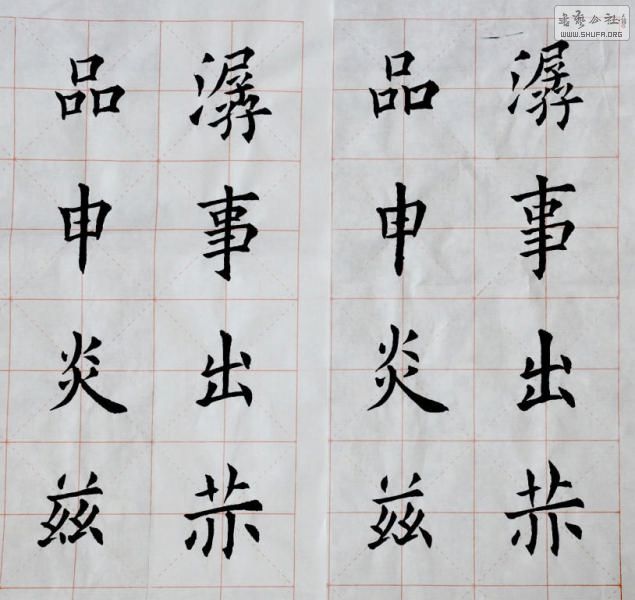 潺事出
品申炎兹
潺事出
品申炎兹
书艺公社
WWW.SHUFA.ORG